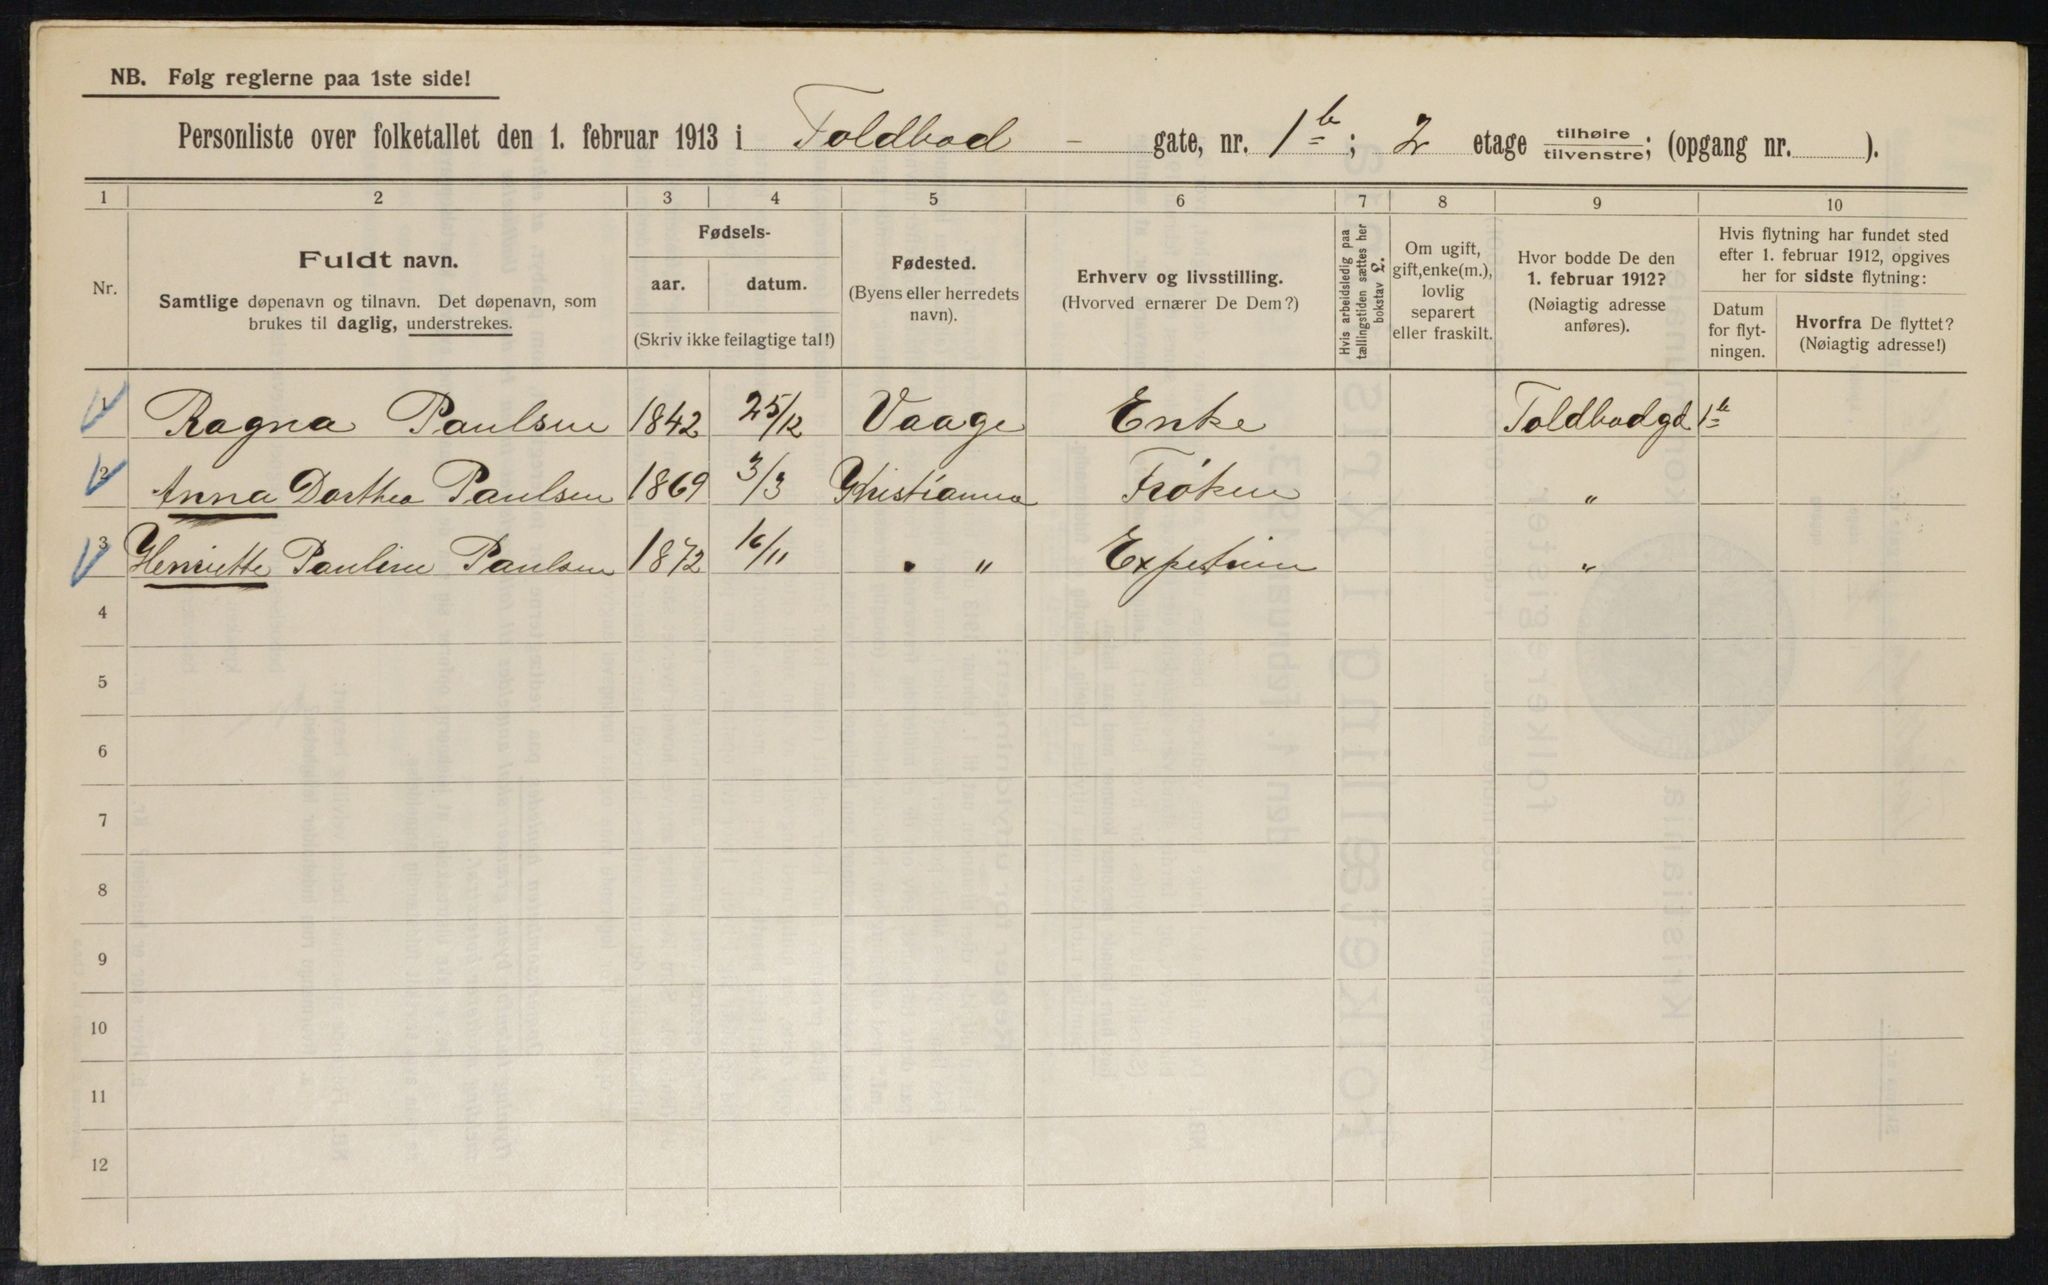 NB. Følg reglerne paa 1ste side!
Personliste over folketallet den 1. februar 1913 i Toldbod - gate, nr. 1b; 2 etage tilhøire/tilvenstre; (opgang nr. ).
1 2 3 4 5 6 7 8 9 10
Nr.
Fuldt navn.
Samtlige døpenavn og tilnavn. Det døpenavn, som
brukes til daglig, understrekes.
Fødsels-
aar. datum.
(Skriv ikke feilagtige tal!)
Fødested.
(Byens eller herredets
navn).
Erhverv og livsstilling.
(Hvorved ernærer De Dem?)
Hvis arbeidsledig paa
tællingstiden sættes her
bokstav L.
Om ugift,
gift, enke(m.),
lovlig
separert
eller fraskilt.
Hvor bodde De den
1. februar 1912?
(Nøiagtig adresse
anføres).
Hvis flytning har fundet sted
efter 1. februar 1912, opgives
her for sidste flytning:
Datum
for flyt-
ningen.
Hvorfra De flyttet?
(Nøiagtig adresse!)
1 Ragna Paulsen 1842 25/12 Vaage Enke Toldbodgd 1b
2 Anna Dorthea Paulsen 1869 3/3 Khristiania Frøken "
3 Henriette Pauline Paulsen 1872 16/11 " " "
4
5
6
7
8
9
10
11
12